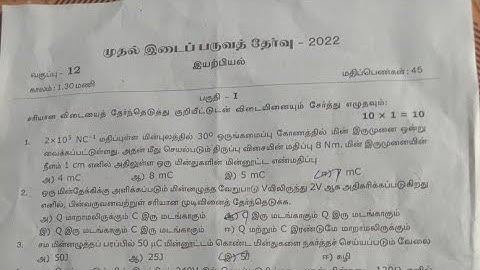 முதல் இடைப் பருவத் தேர்வு - 2022
வகுப்பு - 12
இயற்பியல்
காலம் : 1.30 மணி
மதிப்பெண்கள் : 45
பகுதி - I
சரியான விடையைத் தேர்ந்தெடுத்து குறியீட்டுடன் விடையினையும் சேர்த்து எழுதவும்:
10 × 1 = 10
1. 2×10⁵ NC⁻¹ மதிப்புள்ள மின்புலத்தில் 30⁰ ஒருங்கமைப்பு கோணத்தில் மின் இருமுனை ஒன்று
வைக்கப்பட்டுள்ளது. அதன் மீது செயல்படும் திருப்பு விசையின் மதிப்பு 8 Nm. மின் இருமுனையின்
நீளம் 1 cm எனில் அதிலுள்ள ஒரு மின்துகளின் மின்னூட்ட எண்மதிப்பு
அ) 4 mC ஆ) 8 mC இ) 5 mC ஈ) 7 mC
2. ஒரு மின்தேக்கிக்கு அளிக்கப்படும் மின்னழுத்த வேறுபாடு V யிலிருந்து 2V ஆக அதிகரிக்கப்படுகிறது
எனில், பின்வருவனவற்றுள் சரியான முடிவினைத் தேர்ந்தெடுக்க.
அ) Q மாறாமலிருக்கும் C இரு மடங்காகும் ஆ) Q இரு மடங்காகும் C மாறாமலிருக்கும்
இ) C இரு மடங்காகும் Q இரு மடங்காகும் ஈ) Q மற்றும் C இரண்டுமே மாறாமலிருக்கும்
3. சம மின்னழுத்தப் பரப்பில் 50 μC மின்னூட்டம் கொண்ட மின்துகளை நகர்த்தச் செய்யப்படும் வேலை
அ) 50J ஆ) 25J இ) 5J ஈ) சுழி